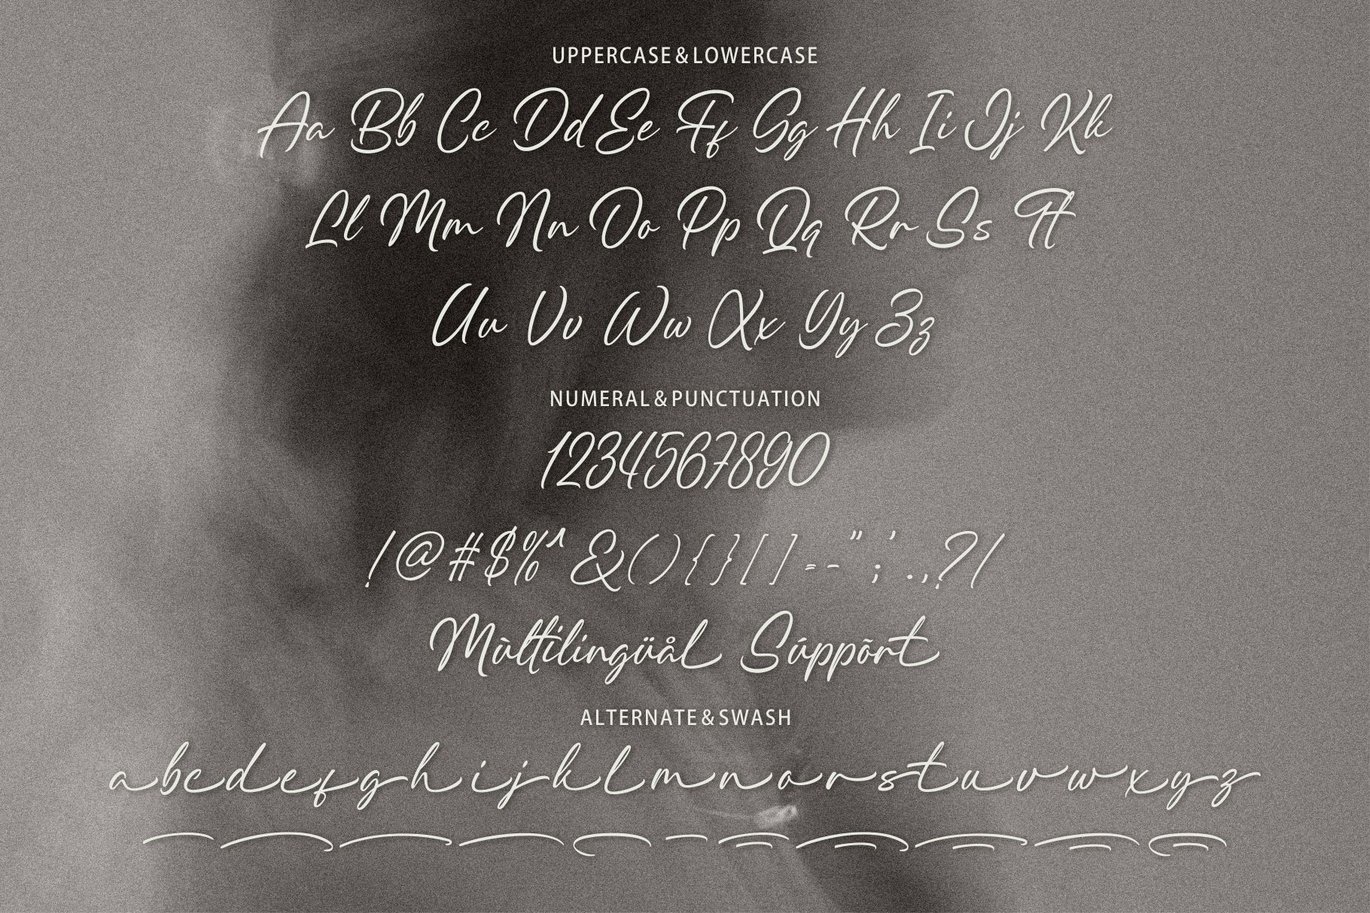 UPPERCASE & LOWERCASE
Aa Bb Cc Dd Ee Ff Gg Hh Ii Jj Kk
Ll Mm Nn Oo Pp Qq Rr Ss Tt
Uu Vv Ww Xx Yy Zz
NUMERAL & PUNCTUATION
1234567890
!@#$%^&(){}[]=-";'.,?/
Mùltilingüål Súppõrt
ALTERNATE & SWASH
abcdefghijklmnorstuvwxyz